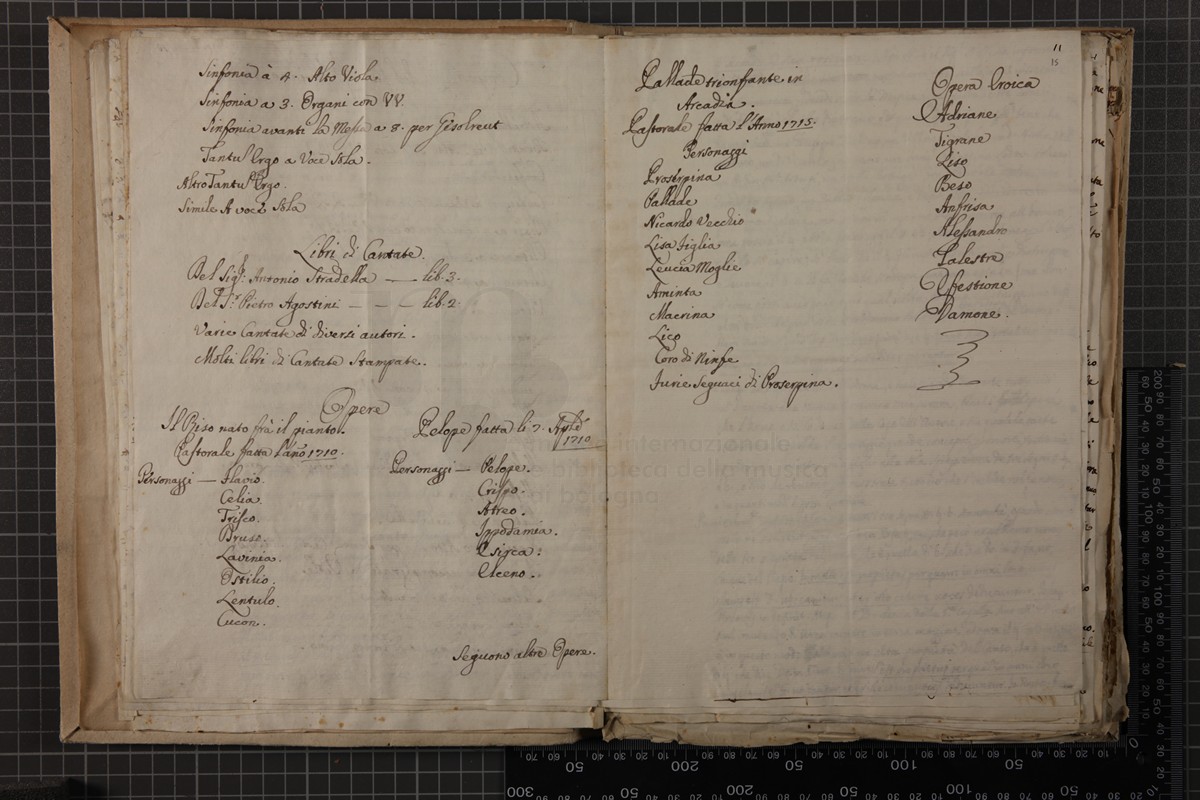 Sinfonia à 4. Alto Viola
Sinfonia a 3. Organi con VV.
Sinfonia avanti la Messa a 8. per Gisolreut
Tantu Ergo a Voce Sola.
Altro Tantu Ergo.
Simile A voce Sola
Libri di Cantate.
Del Sigr. Antonio Stradella — — lib. 3.
Del Sr. Pietro Agostini — — — lib. 2.
Varie Cantate di diversi autori.
Molti libri di Cantate Stampate.
Opere
Il Riso nato frà il pianto.
Pastorale fatta l'año 1710.
Personaggi — Flavio.
Celia.
Trisco.
Bruso.
Lavinia.
Ostilio.
Lentulo.
Cucon.
Pelope fatta li 7.
1710
Personaggi — Pelope.
Crispo.
Atreo.
Ippodamia.
Elceno.
Seguono altre Opere.
11
15
Pallade trionfante in
Arcadia.
Pastorale fatta l'Anno 1715.
Personaggi
Proserpina
Pallade
Nicardo Vecchio
Lisa figlia
Leucia Moglie
Aminta
Macrina
Lico
Coro di Ninfe
Furie Seguaci di Proserpina.
Opera Eroica
Adriane
Tigrane
Liso
Beso
Anfrisa
Alessandro
Palestra
Efestione
Damone.
museo internazionale
e biblioteca della musica
di bologna